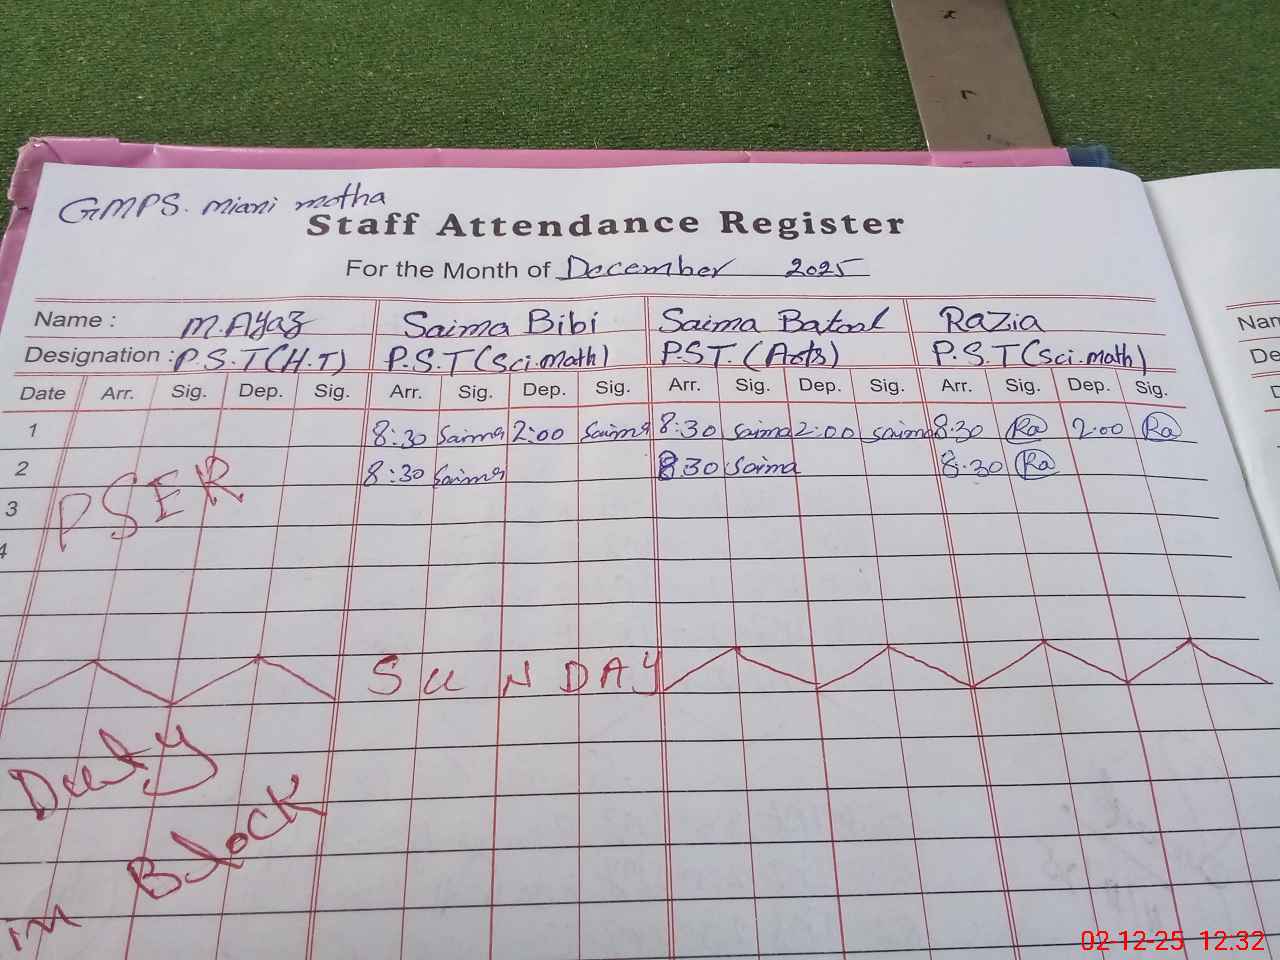 GMPS. miani motha
Staff Attendance Register
For the Month of December 2025
Name : M.Ayaz Saima Bibi Saima Batool Razia
Designation : P.S.T(H.T) P.S.T(Sci.math) P.S.T.(Arts) P.S.T(Sci.math)
Date Arr. Sig. Dep. Sig. Arr. Sig. Dep. Sig. Arr. Sig. Dep. Sig. Arr. Sig. Dep. Sig.
1 8:30 Saima 2:00 Saima 8:30 Saima 2:00 Saima 8:30 Ra 2:00 Ra
2 8:30 Saima 8:30 Saima 8:30 Ra
3
4
PSER
SUNDAY
Duty
in Block
Nam
De
D
02-12-25 12:32